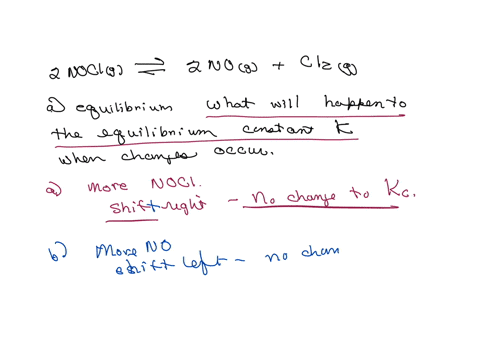 2 NOCl(g) ⇌ 2 NO(g) + Cl2(g)
a) equilibrium what will happen to
the equilibrium constant K
when changes occur.
a) more NOCl.
shift right - No change to Kc.
b) More NO
shift left - no chan